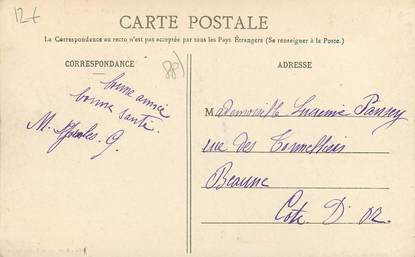 12€
CARTE POSTALE
La Correspondance au recto n'est pas acceptée par tous les Pays Étrangers (Se renseigner à la Poste.)
CORRESPONDANCE
88)
ADRESSE
bonne année
bonne santé.
M. G.
Mademoiselle Lucienne
rue des Tonnelliers
Beaune
Côte D'Or